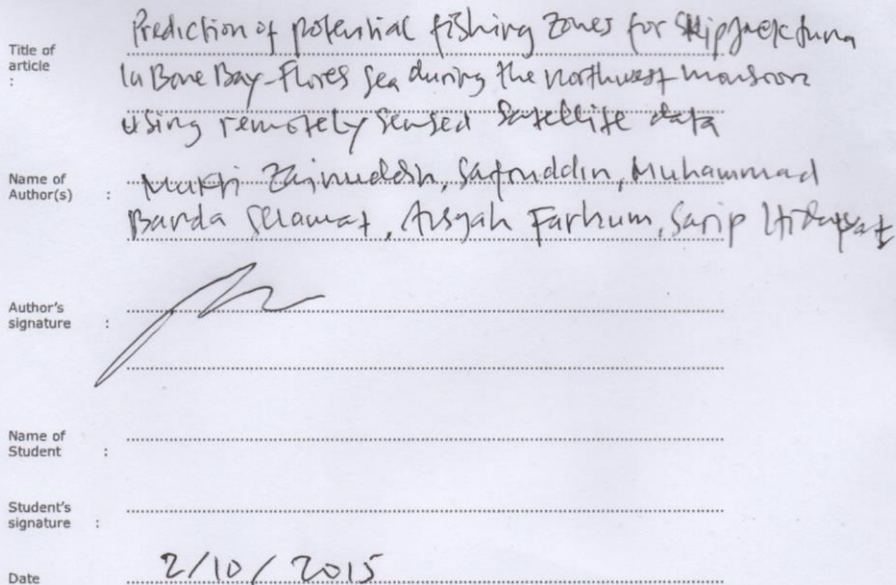 Title of Prediction of potential fishing zones for Skipjack tuna
article in Bone Bay-Flores Sea during the northwest monsoon
: using remotely sensed satellite data
Name of Mukti Zainuddin, Safruddin, Muhammad
Author(s) : Banda Selamat, Aisyah Farhum, Sarip Hidayat
Author's
signature :
Name of
Student :
Student's
signature :
Date 2/10/2015